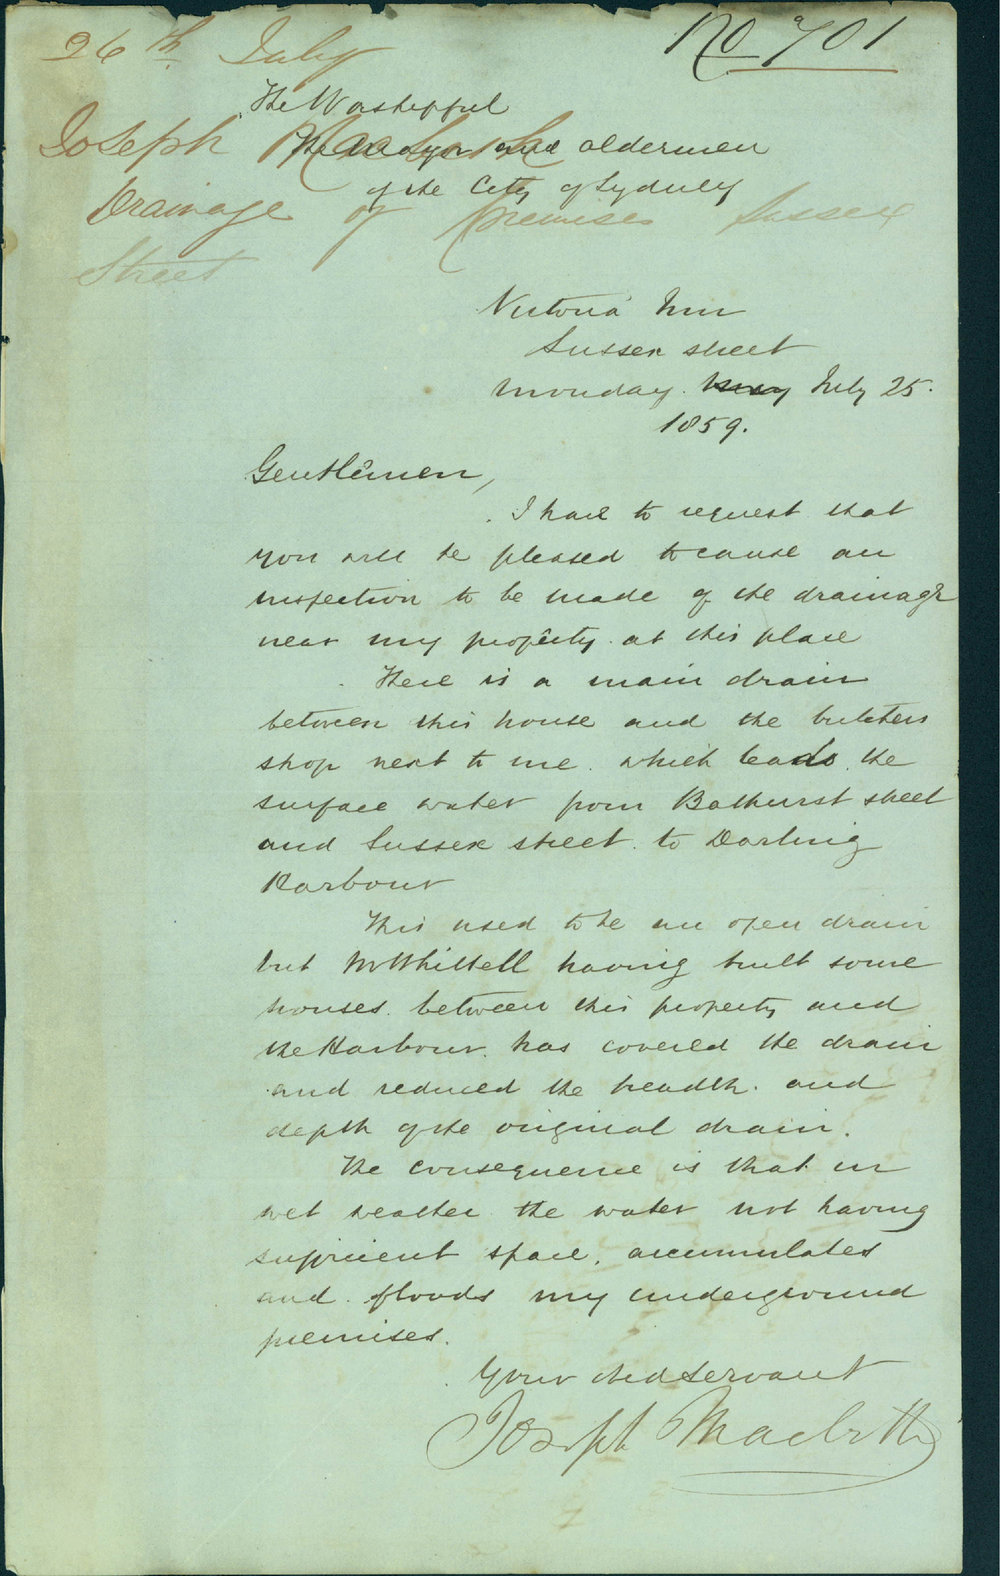 26th July
No 701
The Worshipful
Joseph
The Mayor and aldermen
of the City of Sydney
Drainage of Premises Sussex
Street
Victoria Inn
Sussex street
Monday. May July 25.
1859.
Gentlemen,
I have to request that
you will be pleased to cause an
inspection to be made of the drainage
near my property at this place
There is a main drain
between this house and the butchers
shop next to me. which leads the
surface water from Bathurst street
and Sussex street. to Darling
Harbour
This used to be an open drain
but Mr Whittell having built some
houses. between this property and
the Harbour. has covered the drain
and reduced the breadth. and
depth of the original drain.
The consequence is that in
wet weather the water not having
sufficient space, accumulates
and floods my underground
premises.
Your obed servant
Joseph